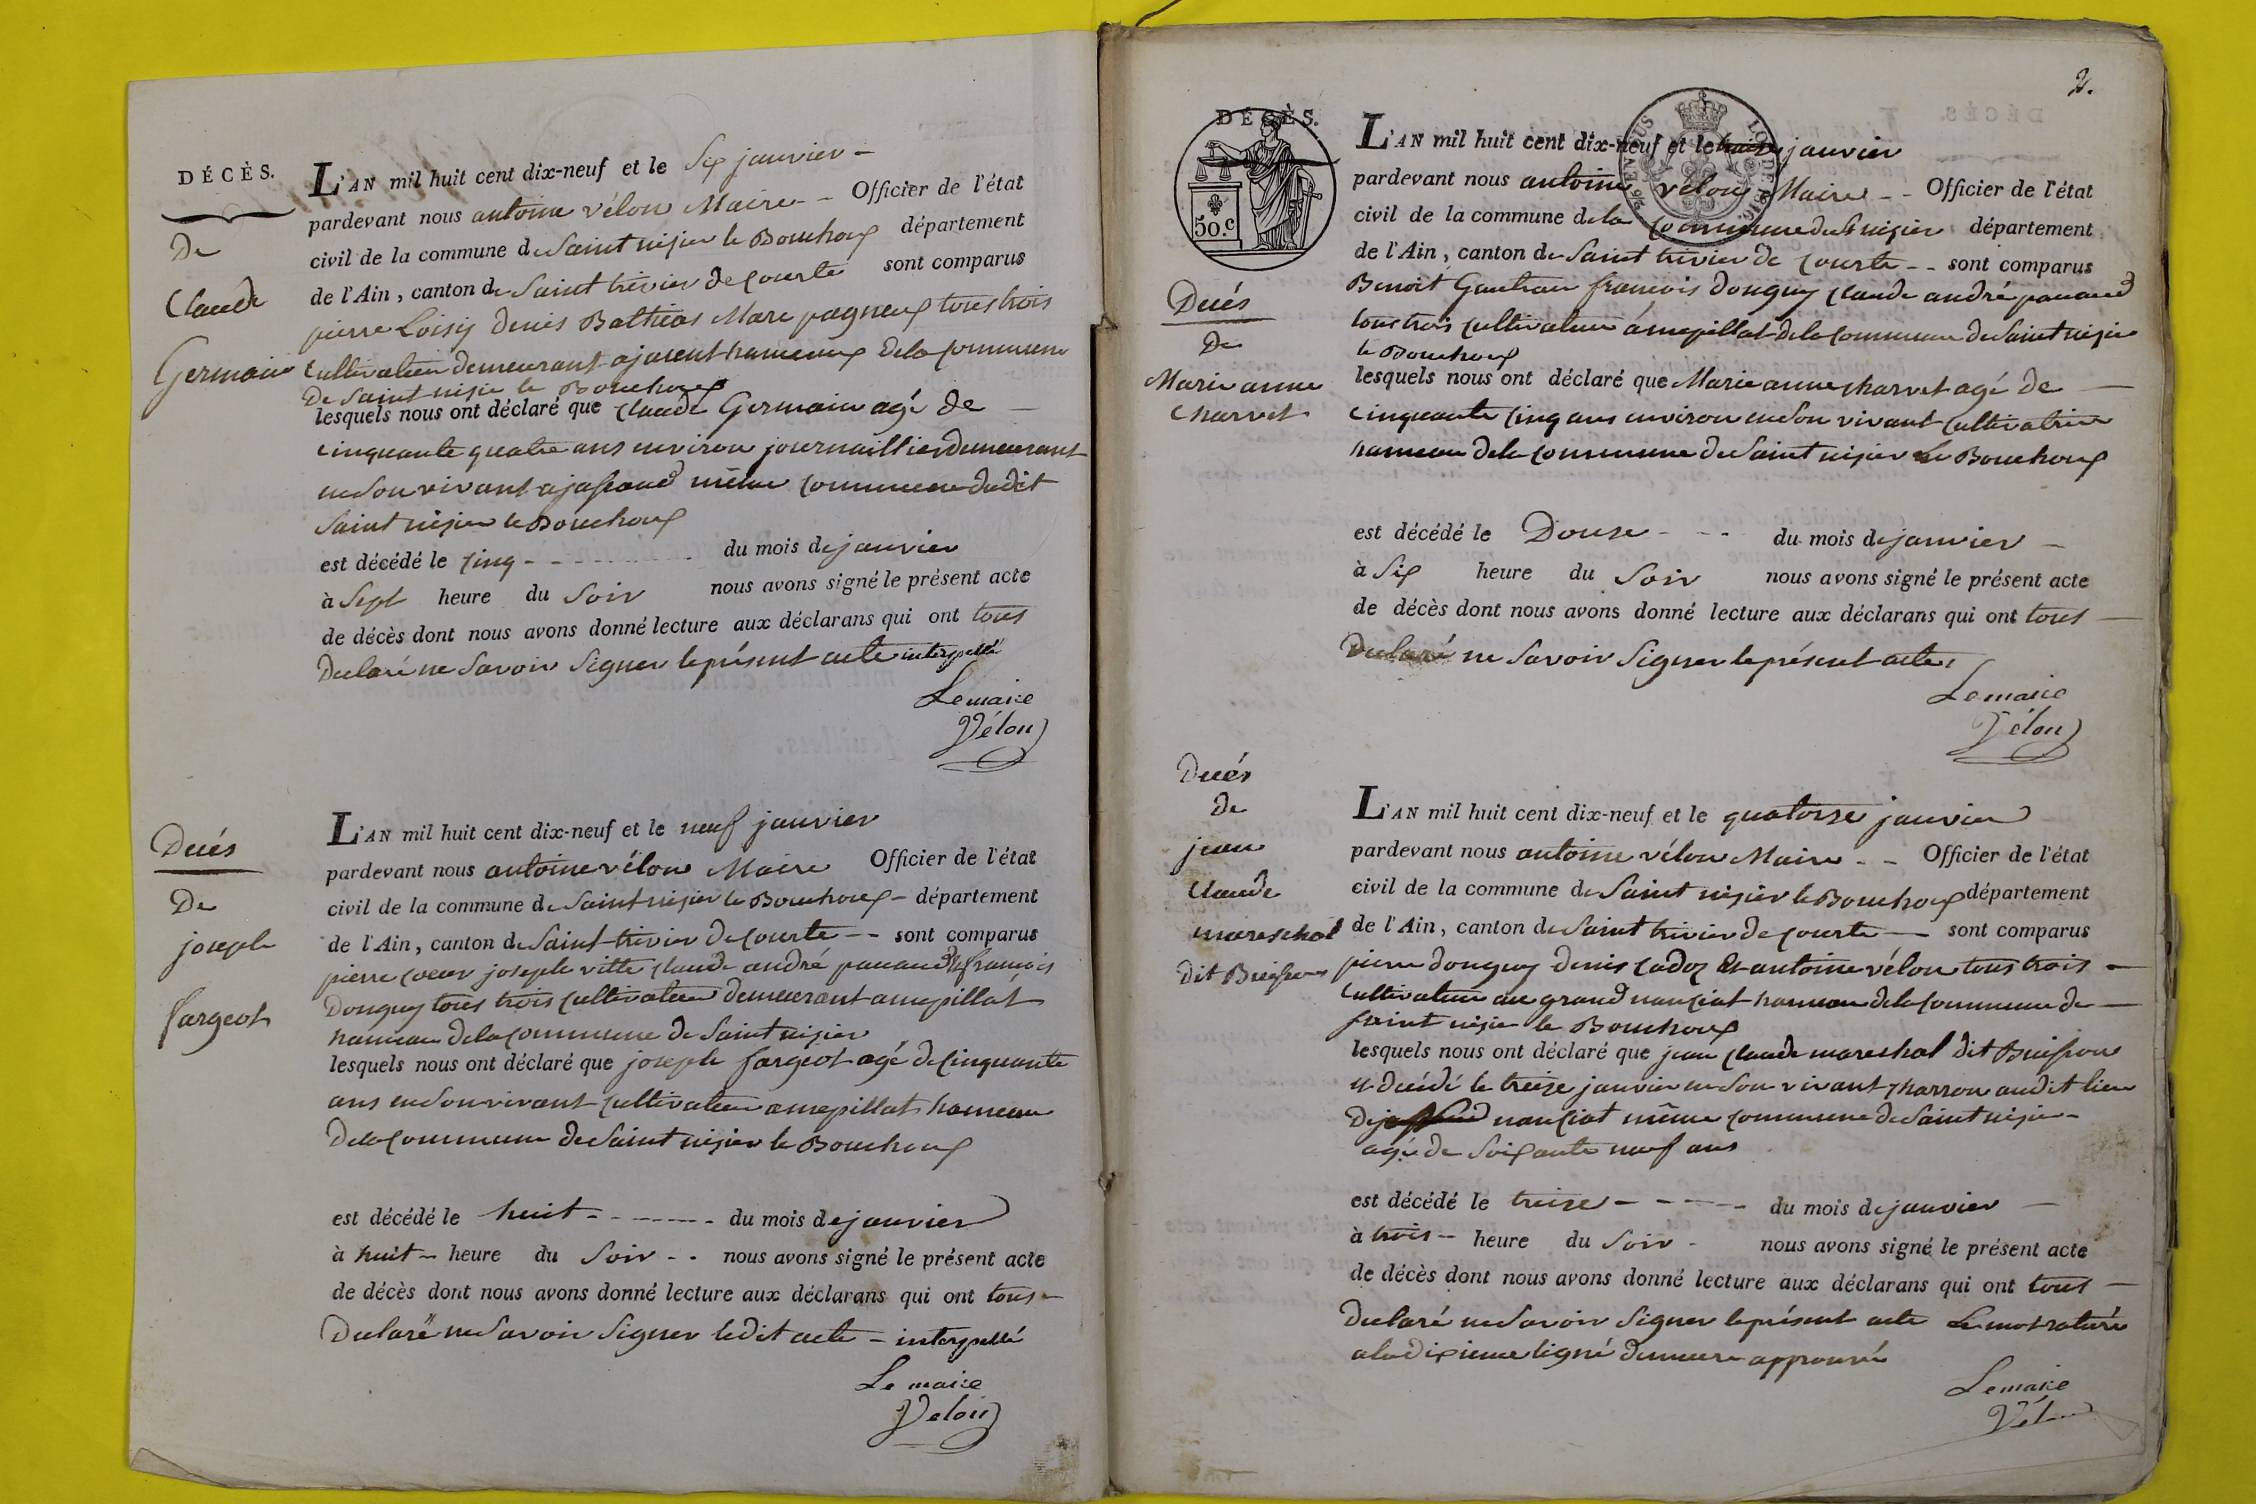 DÉCÈS.
De
Claude
Germain
L'AN mil huit cent dix-neuf et le Six janvier
pardevant nous antoine vélon Maire Officier de l'état
civil de la commune de Saint nisier le Bouchoux département
de l'Ain, canton de Saint trivier de Courte sont comparus
pierre Loisy denis Bathias Marc pagneux tous trois
Cultivateur demeurant a hameaux de la Commune
De Saint nisier le Bouchoux
lesquels nous ont déclaré que Claude Germain agé de
cinquante quatre ans environ journaillier demeurant
en Son vivant a même Commune dudit
Saint nisier le Bouchoux
est décédé le Cinq du mois de janvier
à Sept heure du Soir nous avons signé le présent acte
de décès dont nous avons donné lecture aux déclarans qui ont tous
Declaré ne Savoir Signer le présent acte interpellé
Le maire
Vélon
Decés
De
joseph
fargeot
L'AN mil huit cent dix-neuf et le neuf janvier
pardevant nous antoine vélon Maire Officier de l'état
civil de la commune de Saint nisier le Bouchoux département
de l'Ain, canton de Saint trivier de Courte sont comparus
pierre Coeur joseph vitte Claude andré panaud & françois
Donguy tous trois Cultivateur demeurant a mepillat
hameau de la Commune de Saint nisier
lesquels nous ont déclaré que joseph fargeot agé de Cinquante
ans en Son vivant Cultivateur a mepillat hameau
De la Commune de Saint nisier le Bouchoux
est décédé le huit du mois de janvier
à huit heure du Soir nous avons signé le présent acte
de décès dont nous avons donné lecture aux déclarans qui ont tous
Declaré ne Savoir Signer le dit acte interpellé
Le maire
Velon
2.
DÉCÈS.
50.c
Decés
De
Marie anne
Charvet
L'AN mil huit cent dix-neuf et le treize janvier
pardevant nous antoine vélon Maire Officier de l'état
civil de la commune de la Commune de St nisier département
de l'Ain, canton de Saint trivier de Courte sont comparus
Benoit Gautran françois donguy Claude andré panaud
tous trois Cultivateur à mepillat de la Commune de Saint nisier
le Bouchoux
lesquels nous ont déclaré que Marie anne Charvet agé de
Cinquante Cinq ans environ en Son vivant Cultivatrice
hameau de la Commune de Saint nisier le Bouchoux
est décédé le Douse du mois de janvier
à Six heure du Soir nous avons signé le présent acte
de décès dont nous avons donné lecture aux déclarans qui ont tous
Declaré ne Savoir Signer le présent acte
Le maire
Vélon
Decés
De
jean
Claude
mareschal
dit Buisson
L'AN mil huit cent dix-neuf et le quatorse janvier
pardevant nous antoine vélon Maire Officier de l'état
civil de la commune de Saint nisier le Bouchoux département
de l'Ain, canton de Saint trivier de Courte sont comparus
pierre donguy denis Cadoz & antoine vélon tous trois
Cultivateur au grand nanciat hameau de la Commune de
Saint nisier le Bouchoux
lesquels nous ont déclaré que jean Claude mareschal dit Buisson
est decédé le treize janvier en Son vivant Charron audit lieu
De nanciat même Commune de Saint nisier
agé de Soixante neuf ans
est décédé le treize du mois de janvier
à trois heure du Soir nous avons signé le présent acte
de décès dont nous avons donné lecture aux déclarans qui ont tous
Declaré ne Savoir Signer le présent acte Le mot raturé
a la dixieme ligné demeure approuvé
Le maire
Vélon